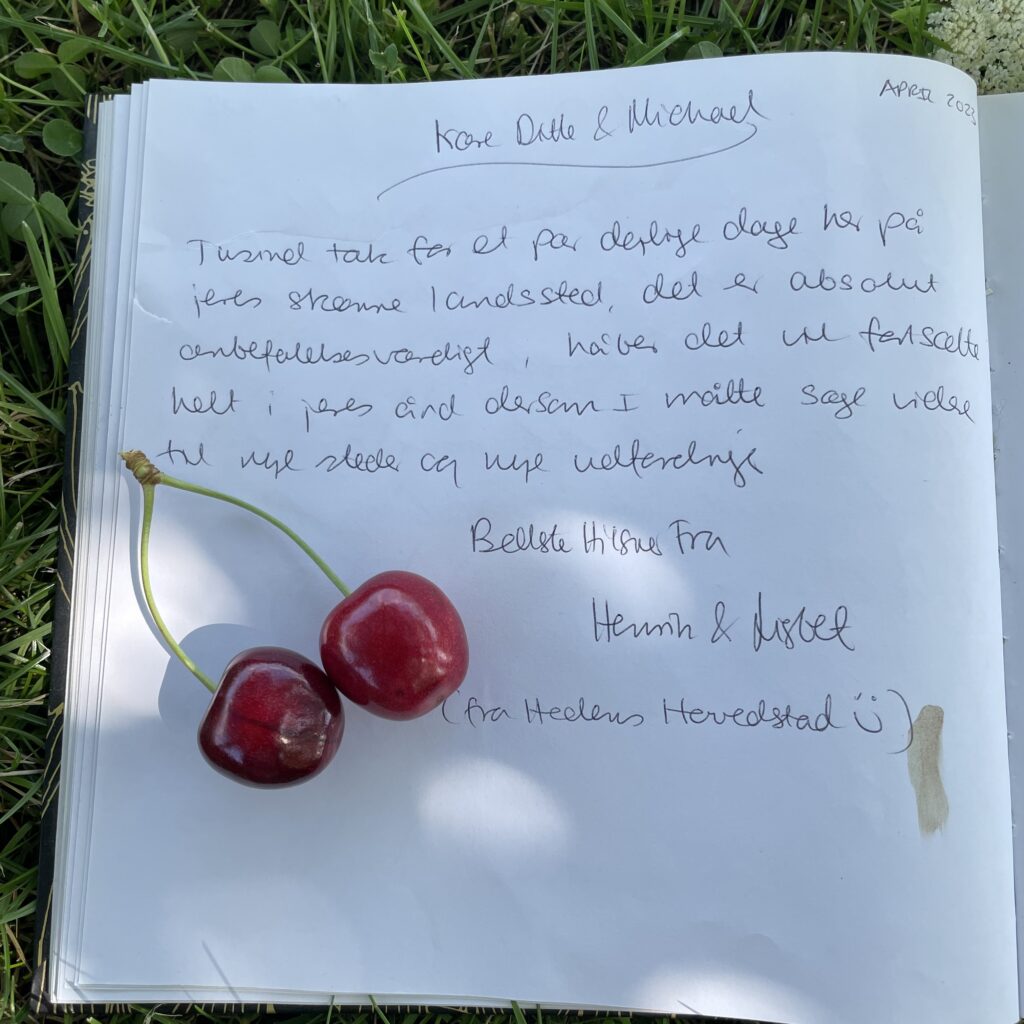 APRIL 2023
Kære Ditte & Michael
Tusind tak for et par dejlige dage her på
jeres skønne landssted, det er absolut
anbefalelsesværdigt, håber det vil fortsætte
helt i jeres ånd dersom I måtte søge videre
til nye steder og nye udfordringe
Bedste Hilsner Fra
Henrik & Lisbet
(fra Hedens Hovedstad ü)